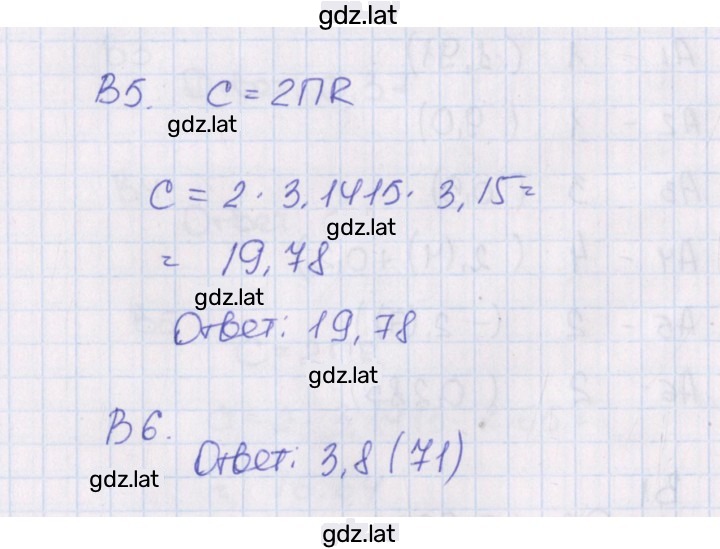 gdz.lat
В5. C = 2ПR
gdz.lat
C = 2 · 3,1415 · 3,15 =
gdz.lat
= 19,78
gdz.lat
Ответ: 19,78
gdz.lat
В6.
Ответ: 3,8(71)
gdz.lat
gdz.lat